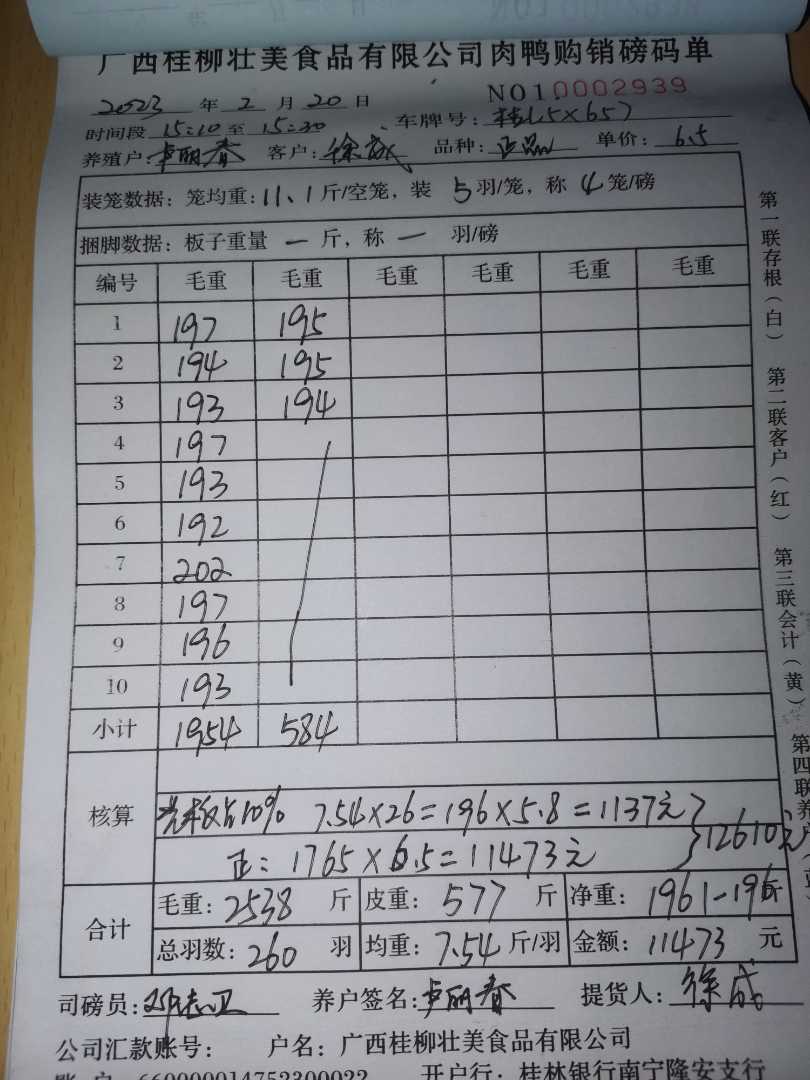 广西桂柳壮美食品有限公司肉鸭购销磅码单
NO10002939
2023 年 2 月 20 日
时间段 15:10 至 15:30 车牌号:
养殖户: 卢丽春 客户: 徐成 品种: 正品 单价: 6.5
装笼数据: 笼均重: 11.1 斤/空笼, 装 5 羽/笼, 称 4 笼/磅
捆脚数据: 板子重量 一 斤, 称 一 羽/磅
编号 毛重 毛重 毛重 毛重 毛重 毛重
1 197 195
2 194 195
3 193 194
4 197
5 193
6 192
7 202
8 197
9 196
10 193
小计 1954 584
核算
占10% 7.54×26=196×5.8=1137元
正: 1765×6.5=11473元
12610元
合计
毛重: 2538 斤 皮重: 577 斤 净重: 1961-196 斤
总羽数: 260 羽 均重: 7.54 斤/羽 金额: 11473 元
司磅员: 养户签名: 卢丽春 提货人: 徐成
公司汇款账号: 户名: 广西桂柳壮美食品有限公司
账户 660000014752300022 开户行: 桂林银行南宁隆安支行
第一联存根(白)
第二联客户(红)
第三联会计(黄)
第四联养户